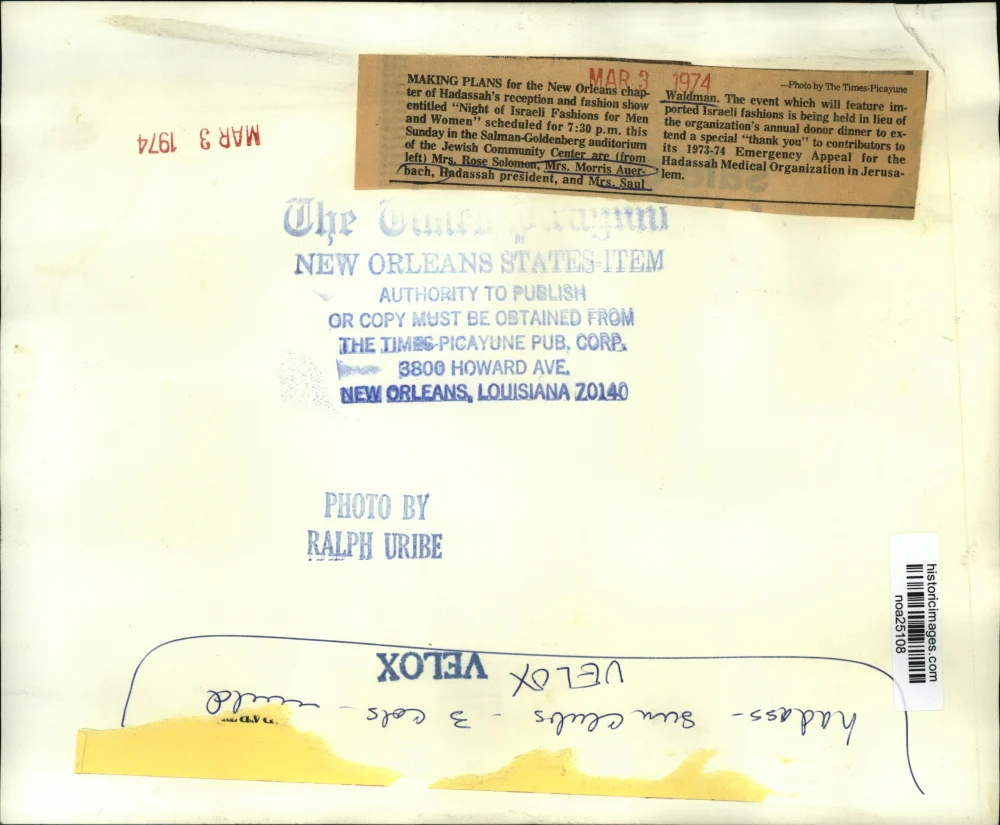 MAR 3 1974
MAKING PLANS for the New Orleans chap-
ter of Hadassah's reception and fashion show
entitled "Night of Israeli Fashions for Men
and Women" scheduled for 7:30 p.m. this
Sunday in the Salman-Goldenberg auditorium
of the Jewish Community Center are (from
left) Mrs. Rose Solomon, Mrs. Morris Auer-
bach, Hadassah president, and Mrs. Saul
—Photo by The Times-Picayune
Waldman. The event which will feature im-
ported Israeli fashions is being held in lieu of
the organization's annual donor dinner to ex-
tend a special "thank you" to contributors to
its 1973-74 Emergency Appeal for the
Hadassah Medical Organization in Jerusa-
lem.
MAR 3 1974
The Times-Picayune
NEW ORLEANS STATES-ITEM
AUTHORITY TO PUBLISH
OR COPY MUST BE OBTAINED FROM
THE TIMES-PICAYUNE PUB. CORP.
3800 HOWARD AVE.
NEW ORLEANS, LOUISIANA 70140
PHOTO BY
RALPH URIBE
historicimages.com
noa25108
VELOX
VELOX
hadass - Sun Clubs - 3 cols -